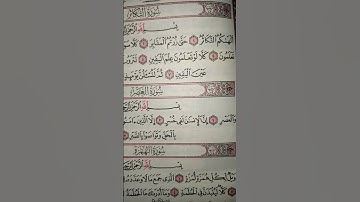 سُورَةُ التَّكَاثُرِ
بِسْمِ اللَّهِ الرَّحْمَٰنِ
أَلْهَىٰكُمُ التَّكَاثُرُ ۝ حَتَّىٰ زُرْتُمُ الْمَقَابِرَ ۝ كَلَّا سَوْفَ
تَعْلَمُونَ ۝ كَلَّا لَوْ تَعْلَمُونَ عِلْمَ الْيَقِينِ ۝ لَتَرَوُنَّ
عَيْنَ الْيَقِينِ ۝ ثُمَّ لَتُسْأَلُنَّ يَوْمَئِذٍ
سُورَةُ الْعَصْرِ
بِسْمِ اللَّهِ الرَّحْمَٰنِ
وَالْعَصْرِ ۝ إِنَّ الْإِنسَانَ لَفِي خُسْرٍ ۝ إِلَّا الَّذِينَ آمَنُوا
بِالْحَقِّ وَتَوَاصَوْا بِالصَّبْرِ
سُورَةُ الْهُمَزَةِ
بِسْمِ اللَّهِ الرَّحْمَٰنِ
وَيْلٌ لِّكُلِّ هُمَزَةٍ لُّمَزَةٍ ۝ الَّذِي جَمَعَ مَالًا وَعَدَّدَهُ
كَلَّا لَيُنبَذَنَّ فِي الْحُطَمَةِ ۝ وَمَا أَدْرَاكَ مَا الْحُطَمَةُ